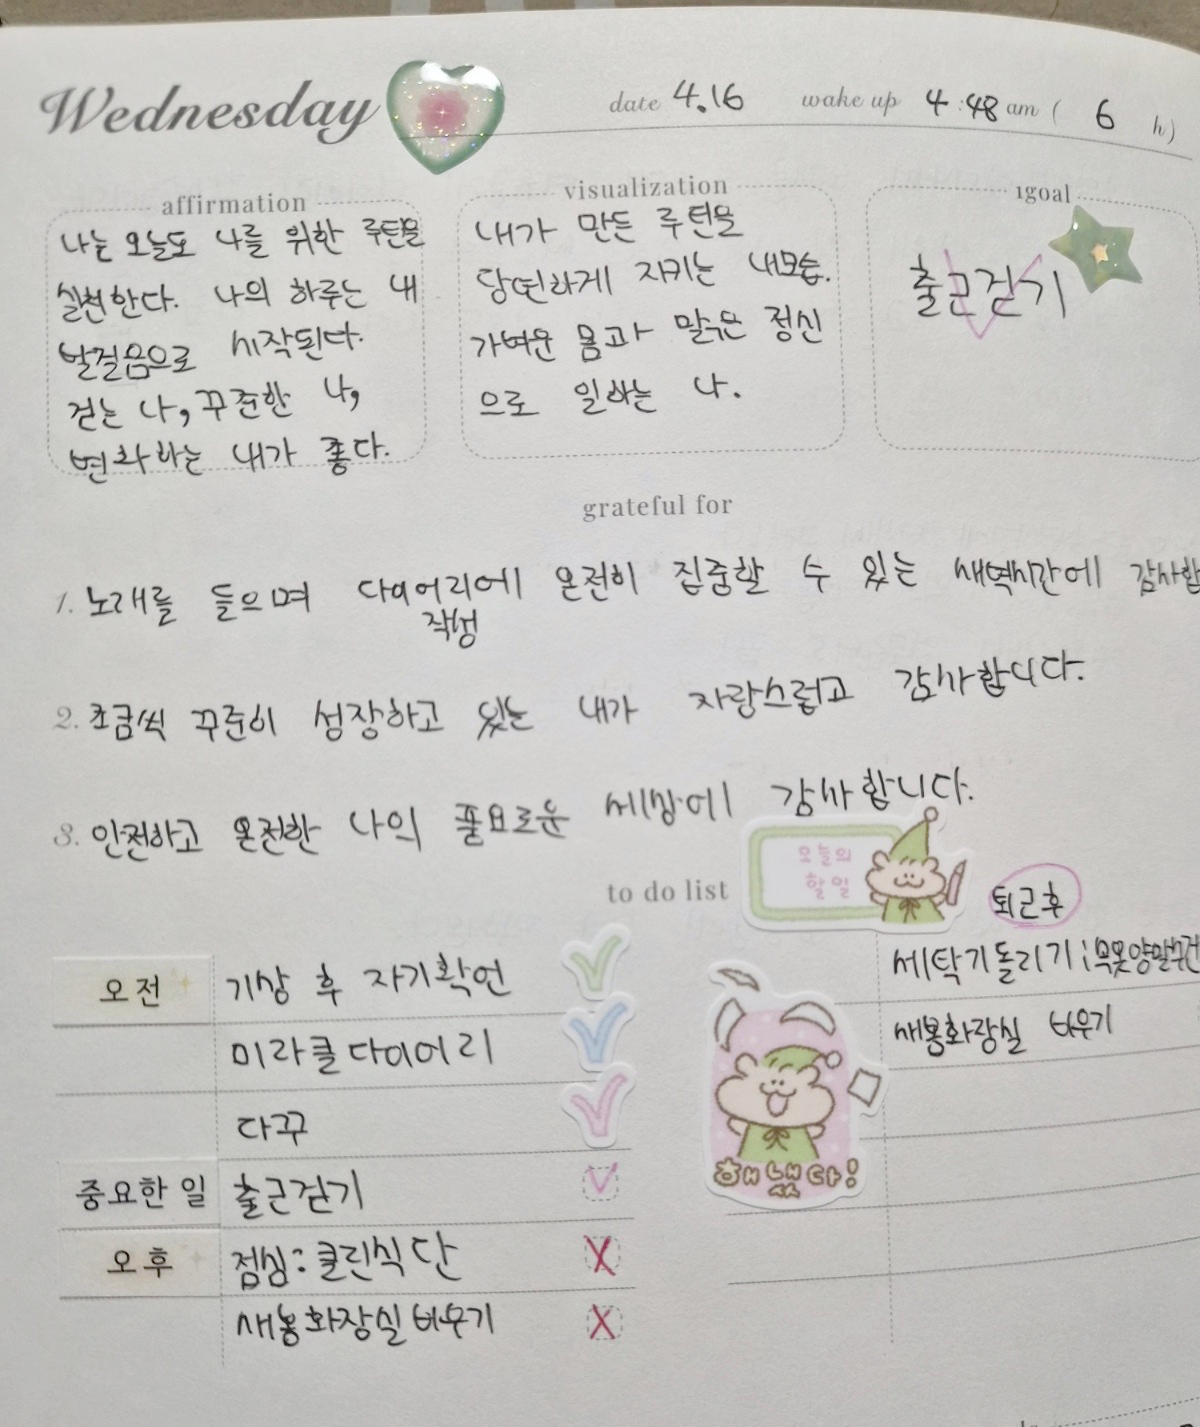 Wednesday
date 4.16 wake up 4:48 am ( 6 h)
affirmation
나는 오늘도 나를 위한 루틴을
실천한다. 나의 하루는 내
발걸음으로 시작된다.
걷는 나, 꾸준한 나,
변화하는 내가 좋다.
visualization
내가 만든 루틴을
당연하게 지키는 내모습.
가벼운 몸과 맑은 정신
으로 일하는 나.
1goal
출근걷기
grateful for
1. 노래를 들으며 다이어리에 온전히 집중할 수 있는 새벽시간에 감사합
작성
2. 조금씩 꾸준히 성장하고 있는 내가 자랑스럽고 감사합니다.
3. 안전하고 온전한 나의 풍요로운 세상에 감사합니다.
to do list
오늘의
할 일
오전 기상 후 자기확언
미라클다이어리
다꾸
중요한 일 출근걷기
오후 점심: 클린식단
새봉화장실 비우기
퇴근후
세탁기돌리기;
새봉화장실 비우기
해냈다!